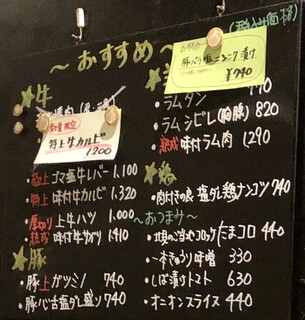 (税込価格)
～おすすめ～
豚バラ塩ニンニク漬け
¥790
牛
数量限定
特上牛カルビ
1200
極上ゴマ塩牛レバー 1.100
特上 味付牛カルビ 1.320
厚切り 上牛ハツ 1.000～
熟成 味付牛サガリ 1.410
豚
豚上ガツミノ 740
740
ラムタン
790
ラムシビレ(胸腺) 820
熟成 味付ラム肉 1290
鶏
肉付きの良 塩ダレ鶏ナンコツ 740
～おつまみ～
コロッケ/たまコロ 440
一本きゅうり味噌 330
しば漬けトマト 630
オニオンスライス 440